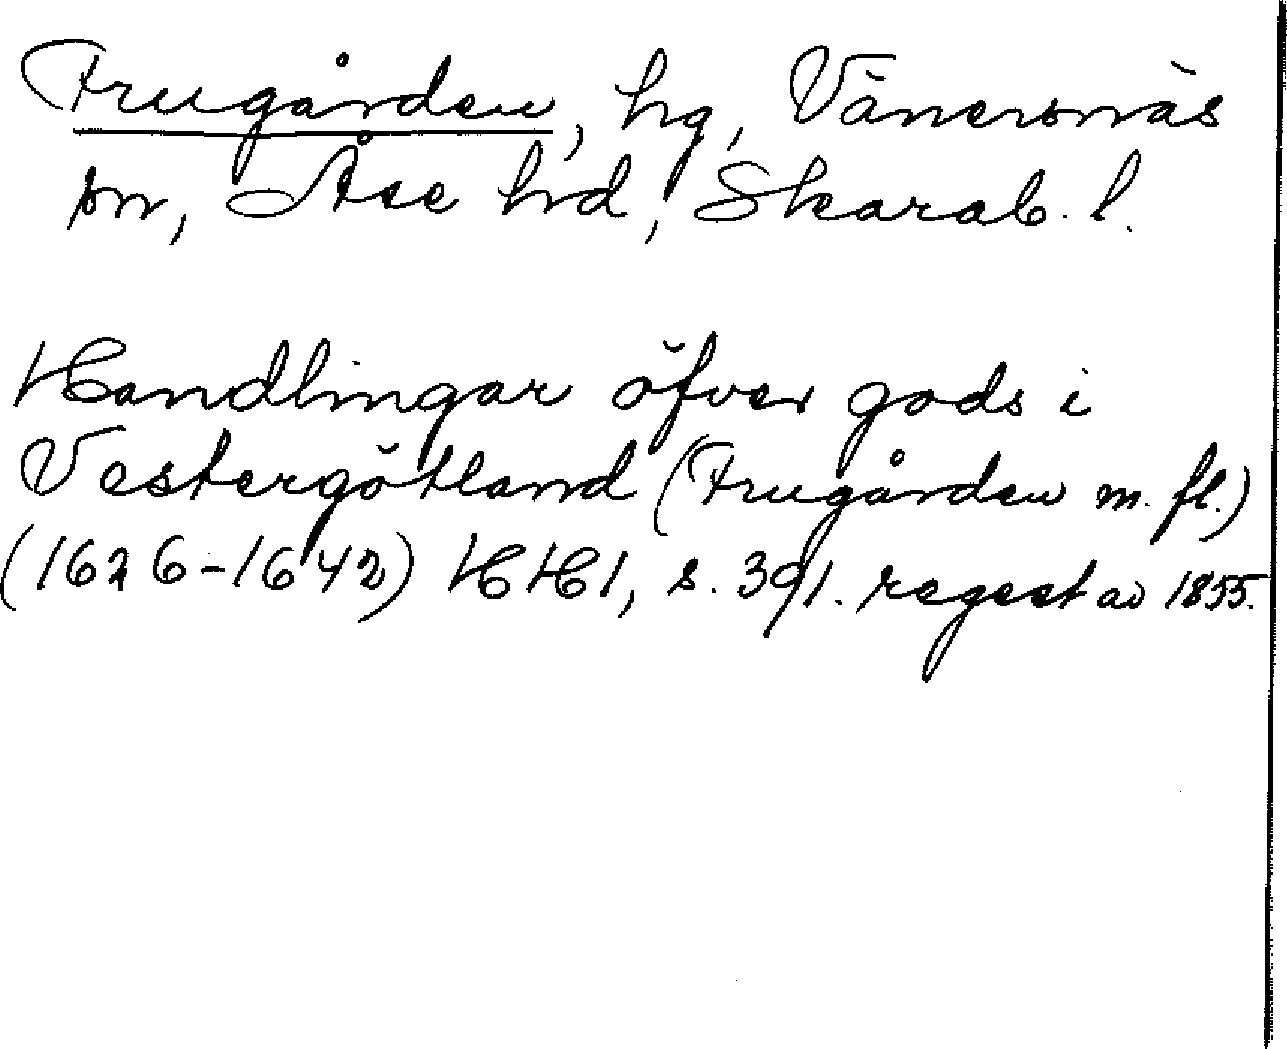 Frugården, hg, Vänersnäs
sn, Åse hd, Skarab. l.
Handlingar öfver gods i
Vestergötland (Frugården m. fl.)
(1626-1642) HH1, s. 391. regest av 1855.